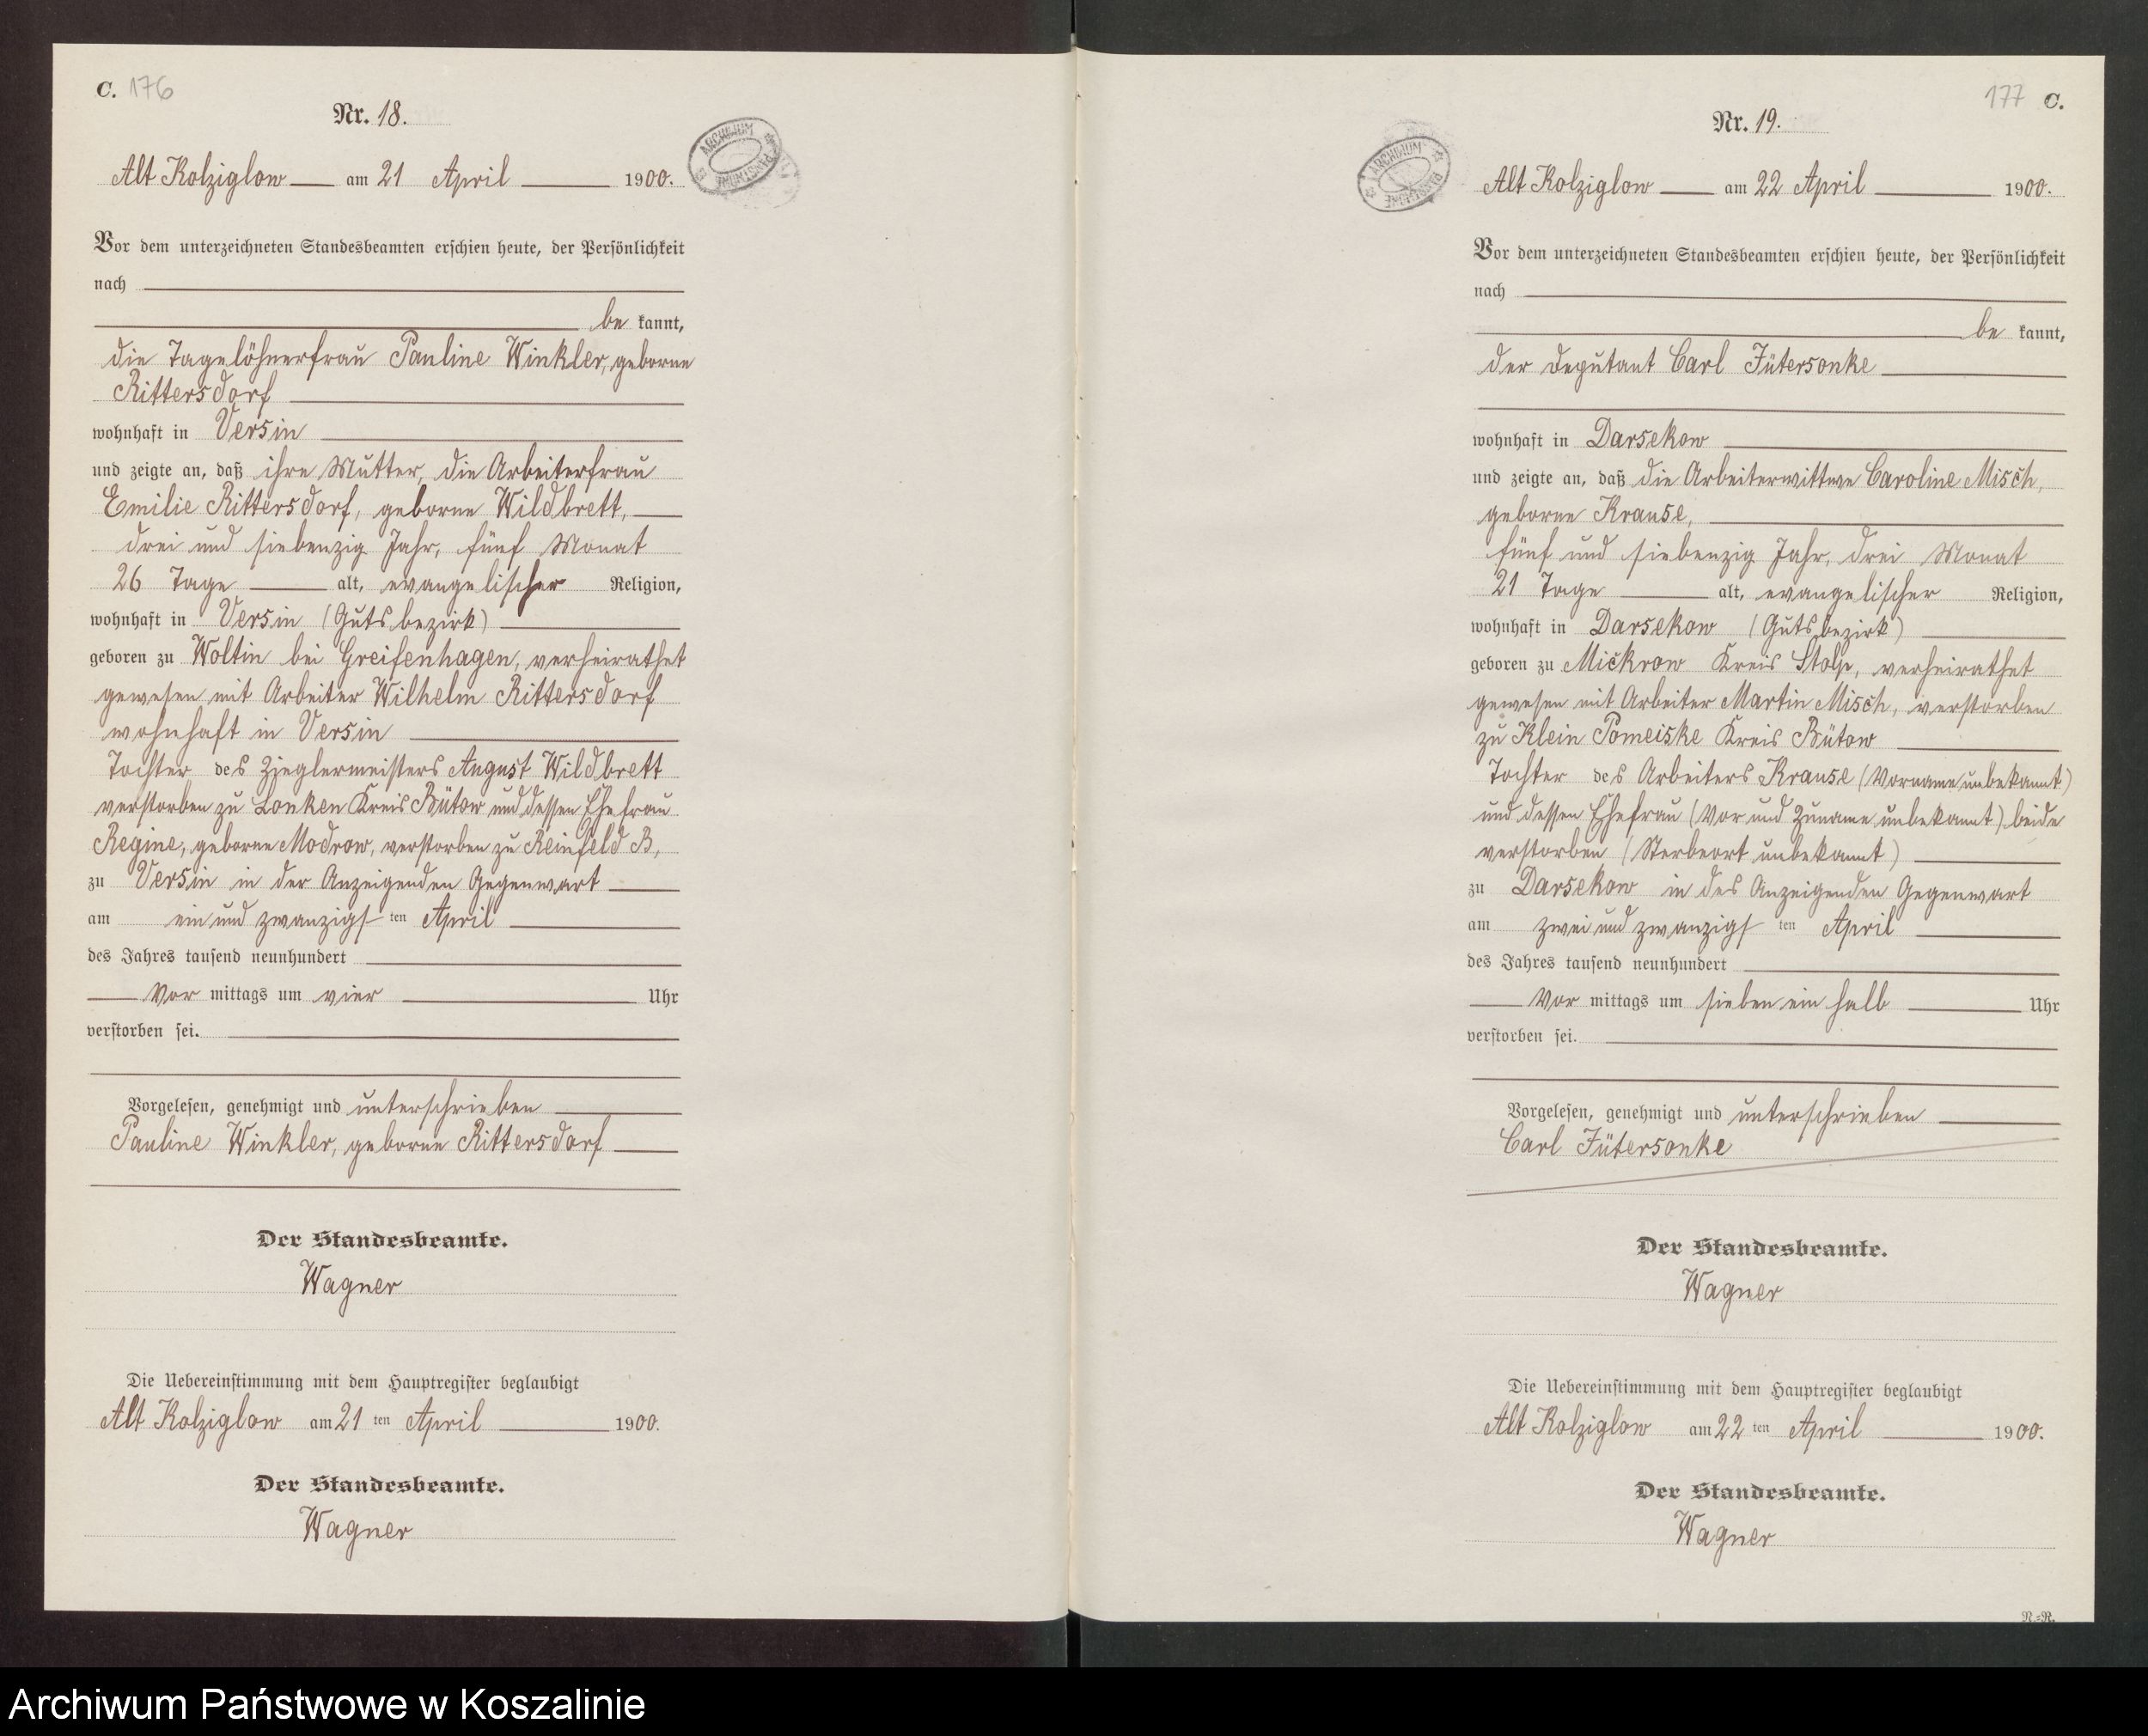 C. 176
Nr. 18.
Alt Kolziglow am 21 April 1900.
ARCHIWUM PAŃSTWOWE
Vor dem unterzeichneten Standesbeamten erschien heute, der Persönlichkeit
nach
be kannt,
die Tagelöhnerfrau Pauline Winkler, geborne
Rittersdorf
wohnhaft in Versin
und zeigte an, daß ihre Mutter, die Arbeiterfrau
Emilie Rittersdorf, geborne Wildbrett,
drei und siebenzig Jahr, fünf Monat
26 Tage alt, evangelischer Religion,
wohnhaft in Versin (Gutsbezirk)
geboren zu Woltin bei Greifenhagen, verheirathet
gewesen mit Arbeiter Wilhelm Rittersdorf
wohnhaft in Versin
Tochter des Zieglermeisters August Wildbrett
verstorben zu Lonken Kreis Bütow und dessen Ehefrau
Regine, geborne Modrow, verstorben zu Reinfeld B,
zu Versin in der Anzeigenden Gegenwart
am ein und zwanzigsten April
des Jahres tausend neunhundert
Vor mittags um vier Uhr
verstorben sei.
Vorgelesen, genehmigt und unterschrieben
Pauline Winkler, geborne Rittersdorf
Der Standesbeamte.
Wagner
Die Uebereinstimmung mit dem Hauptregister beglaubigt
Alt Kolziglow am 21 ten April 1900.
Der Standesbeamte.
Wagner
177 C.
Nr. 19.
Alt Kolziglow am 22 April 1900.
ARCHIWUM PAŃSTWOWE
Vor dem unterzeichneten Standesbeamten erschien heute, der Persönlichkeit
nach
be kannt,
der Deputant Carl Jütersonke
wohnhaft in Darsekow
und zeigte an, daß die Arbeiterwittwe Caroline Misch,
geborne Krause,
fünf und siebenzig Jahr, drei Monat
21 Tage alt, evangelischer Religion,
wohnhaft in Darsekow (Gutsbezirk)
geboren zu Mickrow Kreis Stolp, verheirathet
gewesen mit Arbeiter Martin Misch, verstorben
zu Klein Pomeiske Kreis Bütow
Tochter des Arbeiters Krause (Vorname unbekannt)
und dessen Ehefrau (Vor und Zuname unbekannt) beide
verstorben (Sterbeort unbekannt)
zu Darsekow in des Anzeigenden Gegenwart
am zwei und zwanzigsten April
des Jahres tausend neunhundert
Vor mittags um sieben ein halb Uhr
verstorben sei.
Vorgelesen, genehmigt und unterschrieben
Carl Jütersonke
Der Standesbeamte.
Wagner
Die Uebereinstimmung mit dem Hauptregister beglaubigt
Alt Kolziglow am 22 ten April 1900.
Der Standesbeamte.
Wagner
R.=R.
Archiwum Państwowe w Koszalinie